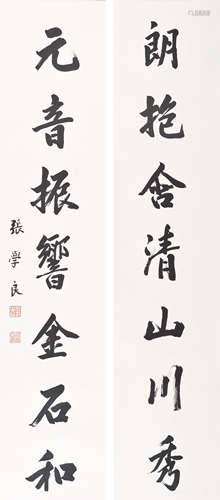 朗抱含清山川秀
元音振響金石和
張學良